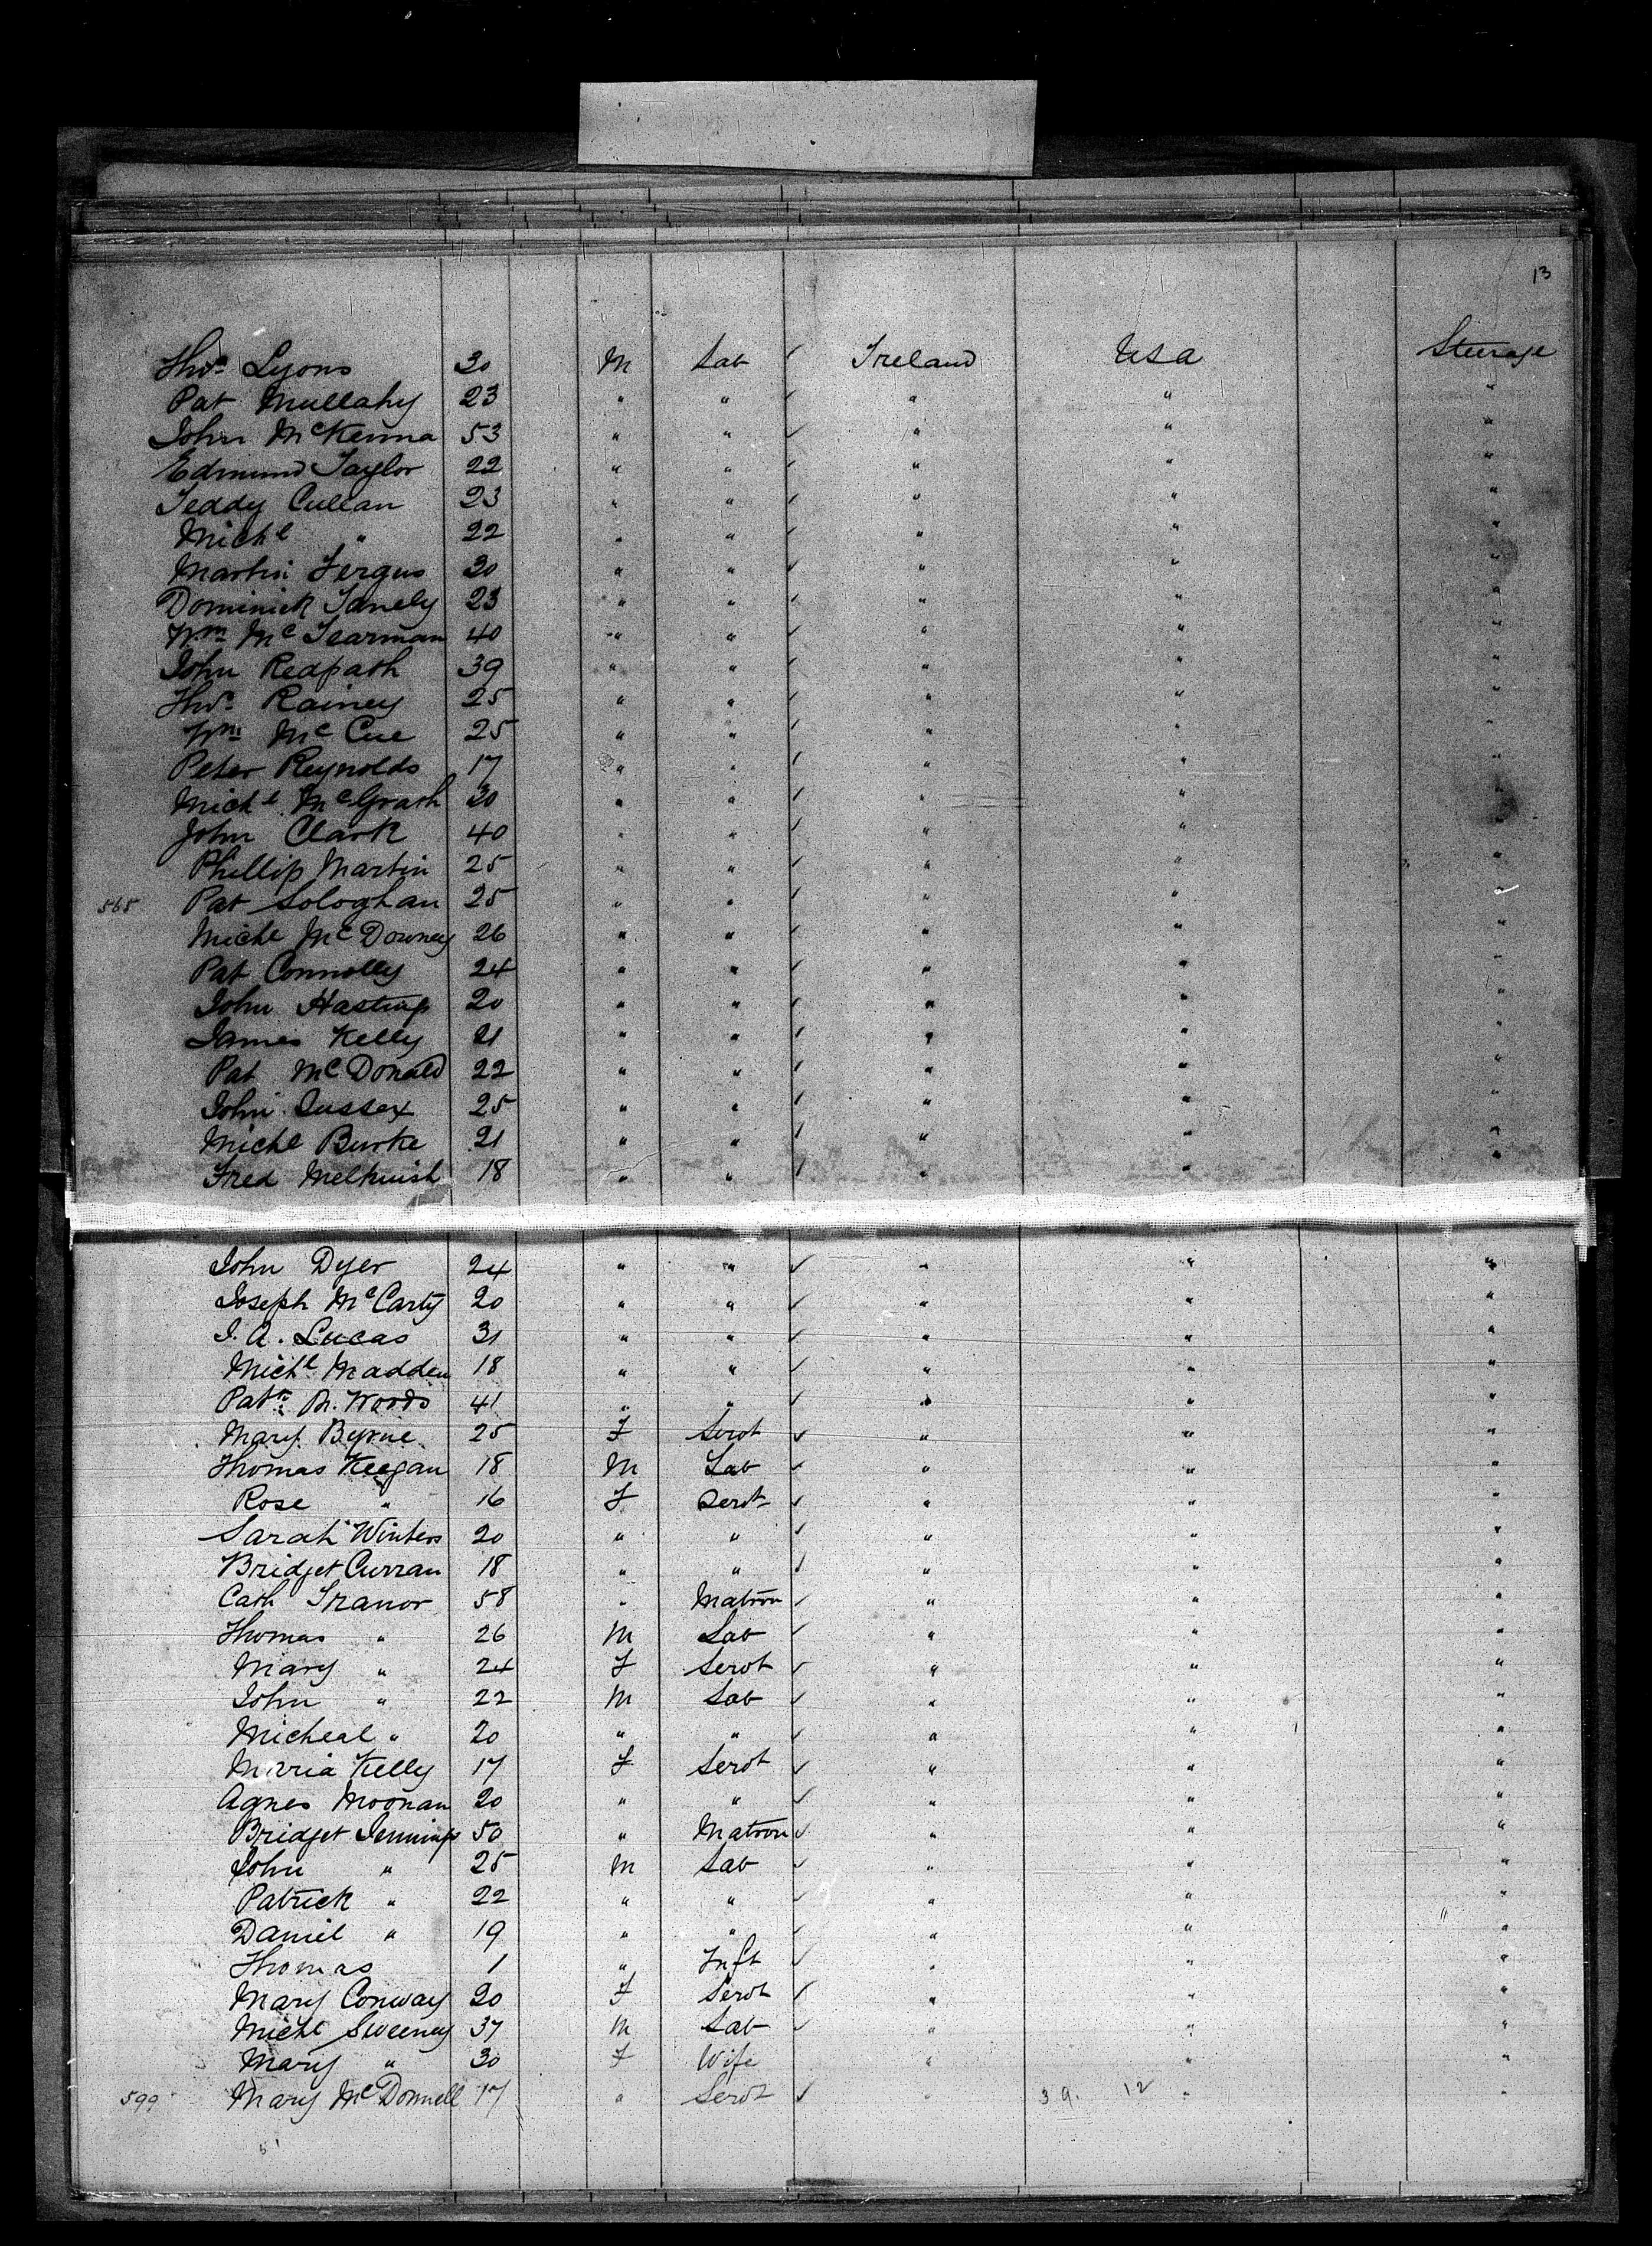 13
Thos. Lyons 30 M Lab ✓ Ireland USA Steerage
Pat Mullahy 23 " " ✓ " " "
John McKenna 53 " " ✓ " " "
Edmund Taylor 22 " " ✓ " " "
Teddy Cullan 23 " " ✓ " " "
Michl " 22 " " ✓ " " "
Martin Fergus 30 " " ✓ " " "
Dominick 23 " " ✓ " " "
Wm Mc Tearman 40 " " ✓ " " "
John Redpath 39 " " ✓ " " "
Thos. Rainey 25 " " ✓ " " "
Wm McCue 25 " " ✓ " " "
Peter Reynolds 17 " " ✓ " " "
Michl McGrath 30 " " ✓ " " "
John Clark 40 " " ✓ " " "
Phillip Martin 25 " " ✓ " " "
565 Pat Sologhan 25 " " ✓ " " "
Michl McDowney 26 " " ✓ " " "
Pat Connolly 24 " " ✓ " " "
John Hastings 20 " " ✓ " " "
James Kelly 21 " " ✓ " " "
Pat McDonald 22 " " ✓ " " "
John Sussex 25 " " ✓ " " "
Michl Burke 21 " " ✓ " " "
Fred Melhuish 18 " " ✓ " " "
John Dyer 24 " " ✓ " " "
Joseph McCarty 20 " " ✓ " " "
J. A. Lucas 31 " " ✓ " " "
Michl Madden 18 " " ✓ " " "
Patk M. Woods 41 " " ✓ " " "
Mary Byrne 25 F Servt ✓ " " "
Thomas Keegan 18 M Lab ✓ " " "
Rose " 16 F Servt ✓ " " "
Sarah Winters 20 " " ✓ " " "
Bridget Curran 18 " " ✓ " " "
Cath Tranor 58 " Matron ✓ " " "
Thomas " 26 M Lab ✓ " " "
Mary " 24 F Servt ✓ " " "
John " 22 M Lab ✓ " " "
Micheal " 20 " " ✓ " " "
Maria Kelly 17 F Servt ✓ " " "
Agnes Moonan 20 " " ✓ " " "
Bridget Jennings 50 " Matron ✓ " " "
John " 25 M Lab ✓ " " "
Patrick " 22 " " ✓ " " "
Daniel " 19 " " ✓ " " "
Thomas 1 " Inft ✓ " " "
Mary Conway 20 F Servt ✓ " " "
Michl Sweeney 37 M Lab ✓ " " "
Mary " 30 F Wife " " "
599 Mary McDonnell 17 " Servt ✓ " 39. 12 " "
51